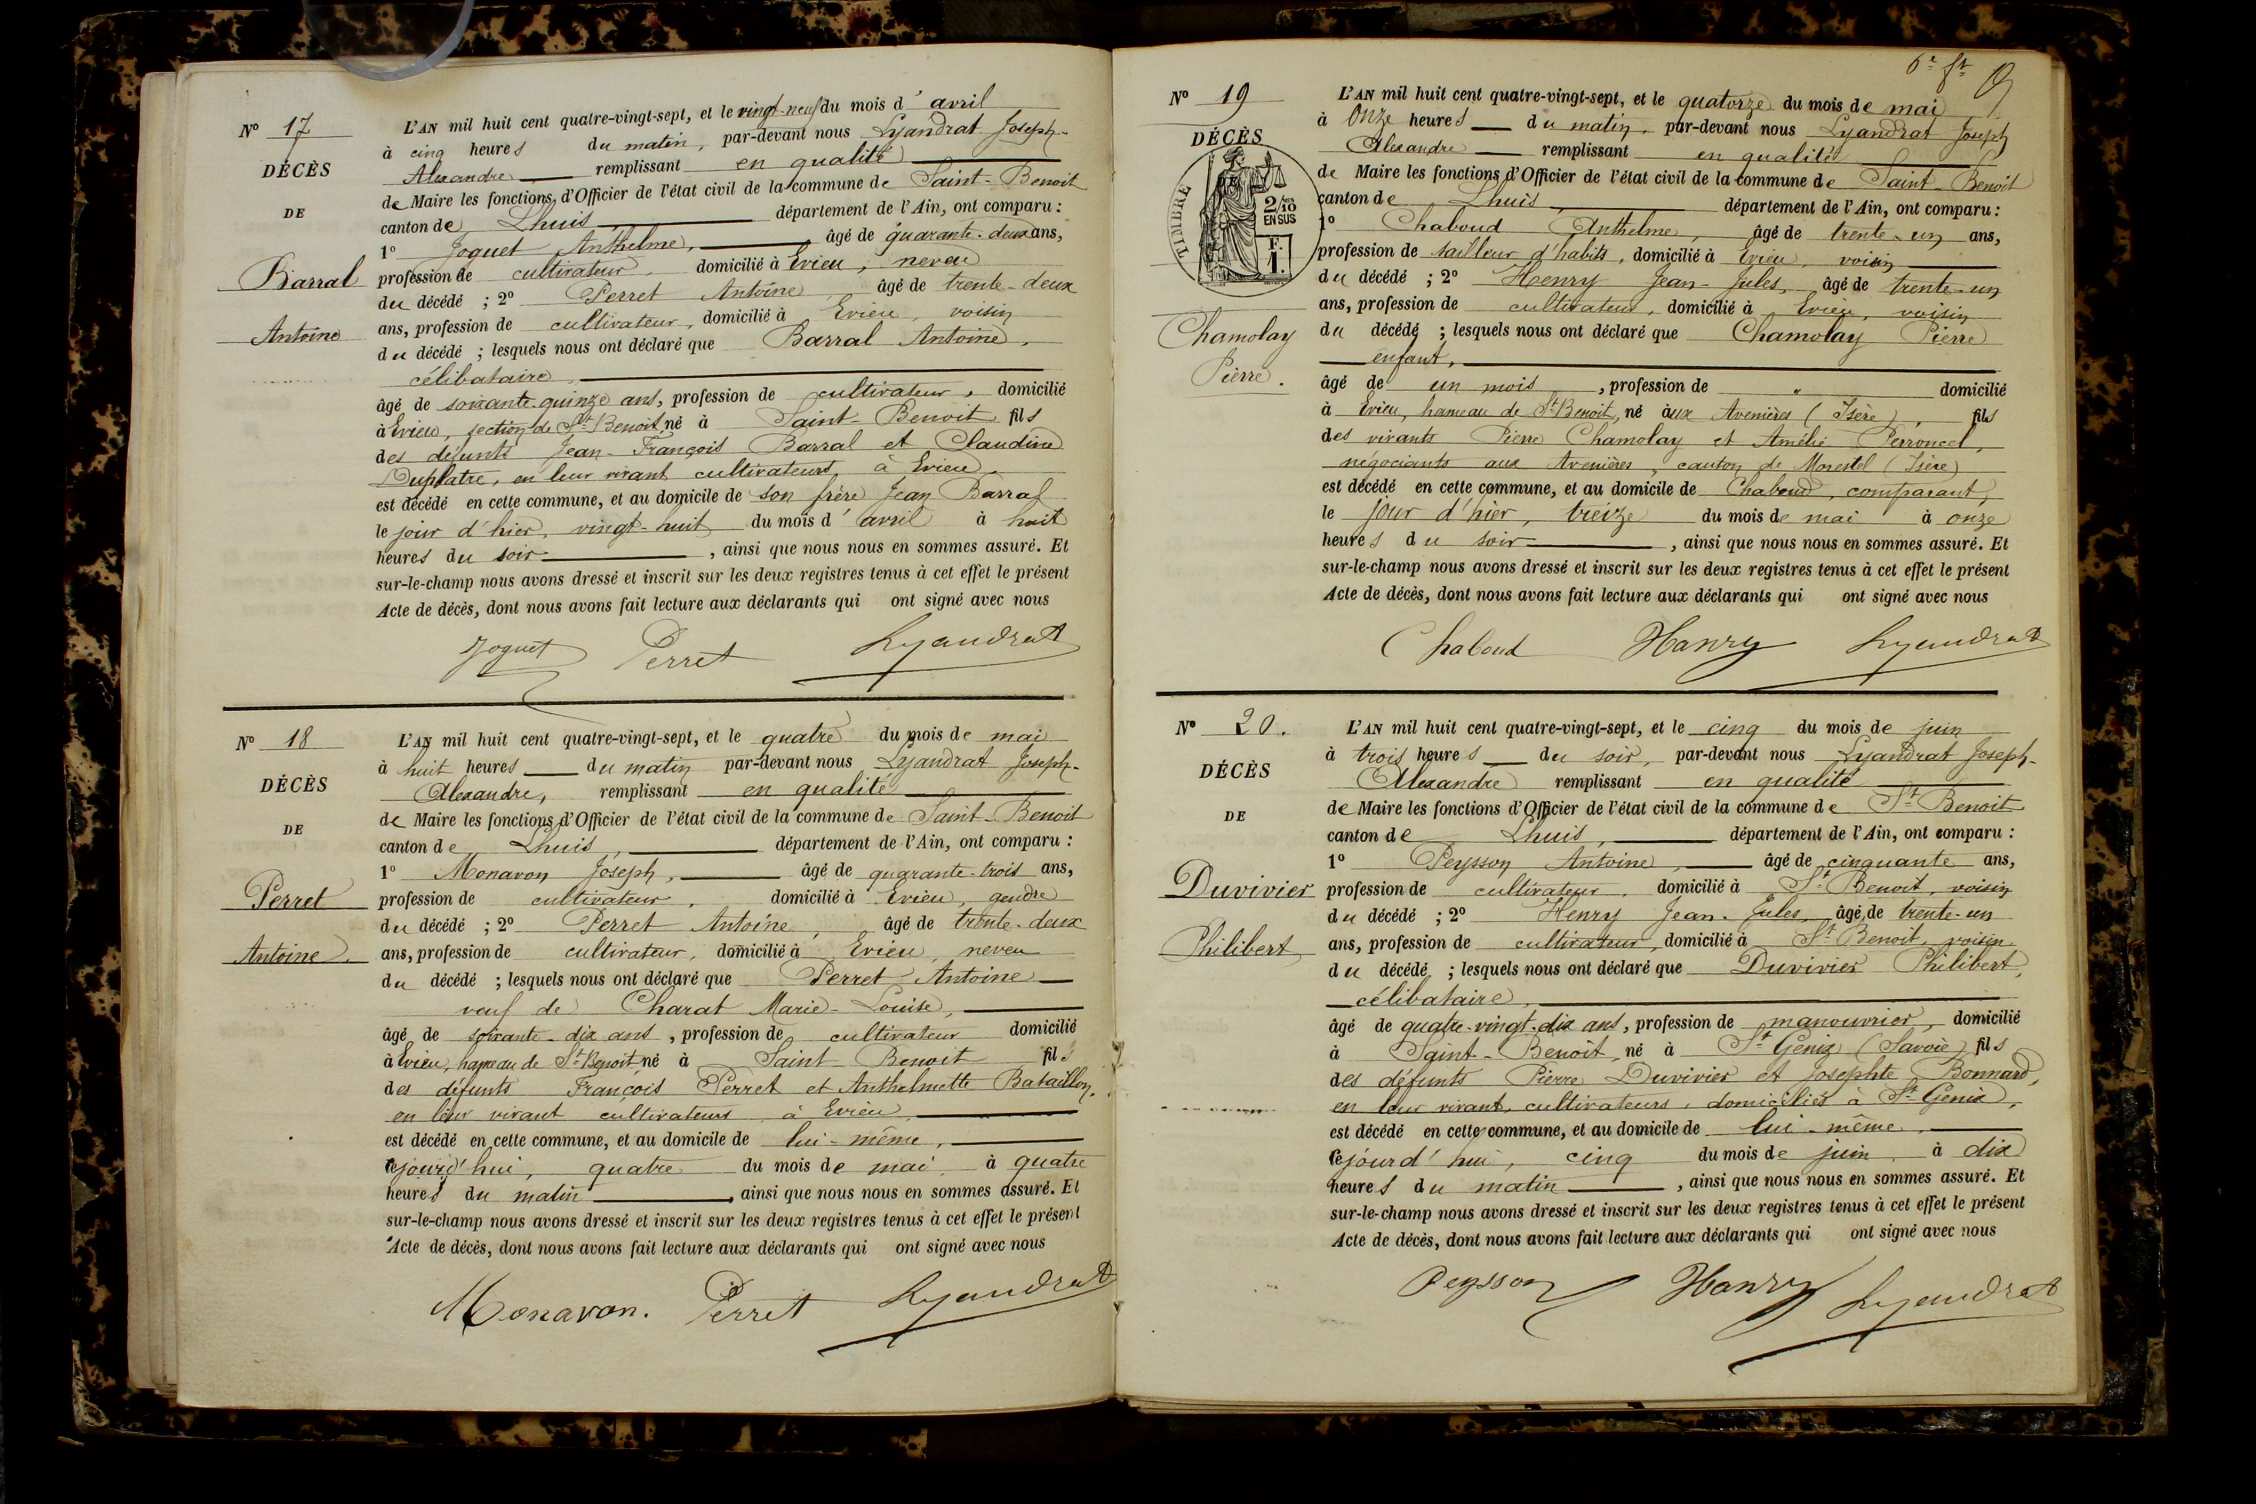 N° 17
DÉCÈS
DE
Barral
Antoine
L'AN mil huit cent quatre-vingt-sept, et le vingt-neuf du mois d'avril
à cinq heures du matin, par-devant nous Lyandrat Joseph-
Alexandre remplissant en qualité
de Maire les fonctions d'Officier de l'état civil de la commune de Saint-Benoit
canton de Lhuis, département de l'Ain, ont comparu :
1° Joguet Anthelme, âgé de quarante-deux ans,
profession de cultivateur, domicilié à Evieu, neveu
du décédé ; 2° Perret Antoine âgé de trente-deux
ans, profession de cultivateur, domicilié à Evieu, voisin
du décédé ; lesquels nous ont déclaré que Barral Antoine,
célibataire,
âgé de soixante-quinze ans, profession de cultivateur, domicilié
à Evieu, section de St Benoit, né à Saint-Benoit fils
des défunts Jean-François Barral et Claudine
Duplatre, en leur vivant cultivateurs à Evieu,
est décédé en cette commune, et au domicile de son frère Jean Barral
le jour d'hier, vingt-huit du mois d'avril à huit
heures du soir, ainsi que nous nous en sommes assuré. Et
sur-le-champ nous avons dressé et inscrit sur les deux registres tenus à cet effet le présent
Acte de décès, dont nous avons fait lecture aux déclarants qui ont signé avec nous
Joguet Perret Lyandrat
N° 18
DÉCÈS
DE
Perret
Antoine.
L'AN mil huit cent quatre-vingt-sept, et le quatre du mois de mai
à huit heures du matin par-devant nous Lyandrat Joseph-
Alexandre, remplissant en qualité
de Maire les fonctions d'Officier de l'état civil de la commune de Saint-Benoit
canton de Lhuis, département de l'Ain, ont comparu :
1° Monavon Joseph, âgé de quarante-trois ans,
profession de cultivateur, domicilié à Evieu, gendre
du décédé ; 2° Perret Antoine, âgé de trente-deux
ans, profession de cultivateur, domicilié à Evieu, neveu
du décédé ; lesquels nous ont déclaré que Perret Antoine
veuf de Charat Marie-Louise,
âgé de soixante-dix ans, profession de cultivateur domicilié
à Evieu, hameau de St Benoit, né à Saint-Benoit fils
des défunts François Perret et Anthelmette Bataillon,
en leur vivant cultivateurs à Evieu
est décédé en cette commune, et au domicile de lui-même,
cejourd'hui, quatre du mois de mai à quatre
heures du matin, ainsi que nous nous en sommes assuré. Et
sur-le-champ nous avons dressé et inscrit sur les deux registres tenus à cet effet le présent
Acte de décès, dont nous avons fait lecture aux déclarants qui ont signé avec nous
Monavon. Perret Lyandrat
N° 19
DÉCÈS
DE
TIMBRE
2/10
EN SUS
F.
1.
Chamolay
Pierre.
L'AN mil huit cent quatre-vingt-sept, et le quatorze du mois de mai
à Onze heures du matin, par-devant nous Lyandrat Joseph
Alexandre remplissant en qualité
de Maire les fonctions d'Officier de l'état civil de la commune de Saint-Benoit
canton de Lhuis, département de l'Ain, ont comparu :
1° Chaboud Anthelme, âgé de trente-un ans,
profession de tailleur d'habits, domicilié à Evieu, voisin
du décédé ; 2° Henry Jean-Jules, âgé de trente-un
ans, profession de cultivateur, domicilié à Evieu, voisin
du décédé ; lesquels nous ont déclaré que Chamolay Pierre
enfant,
âgé de un mois, profession de " domicilié
à Evieu, hameau de St Benoit, né aux Avenières (Isère), fils
des vivants Pierre Chamolay et Amélie Perroncel,
négociants aux Avenières, canton de Morestel (Isère)
est décédé en cette commune, et au domicile de Chaboud, comparant,
le jour d'hier, treize du mois de mai à onze
heures du soir, ainsi que nous nous en sommes assuré. Et
sur-le-champ nous avons dressé et inscrit sur les deux registres tenus à cet effet le présent
Acte de décès, dont nous avons fait lecture aux déclarants qui ont signé avec nous
Chaboud Hanry Lyandrat
N° 20.
DÉCÈS
DE
Duvivier
Philibert
L'AN mil huit cent quatre-vingt-sept, et le cinq du mois de juin
à trois heures du soir, par-devant nous Lyandrat Joseph-
Alexandre remplissant en qualité
de Maire les fonctions d'Officier de l'état civil de la commune de St Benoit
canton de Lhuis, département de l'Ain, ont comparu :
1° Peysson Antoine, âgé de cinquante ans,
profession de cultivateur, domicilié à St Benoit, voisin
du décédé ; 2° Henry Jean-Jules, âgé de trente-un
ans, profession de cultivateur, domicilié à St Benoit, voisin
du décédé ; lesquels nous ont déclaré que Duvivier Philibert,
célibataire,
âgé de quatre-vingt-dix ans, profession de manouvrier, domicilié
à Saint-Benoit, né à St Genix (Savoie) fils
des défunts Pierre Duvivier et Josephte Bonnard,
en leur vivant, cultivateurs, domiciliés à St Genix,
est décédé en cette commune, et au domicile de lui-même,
cejourd'hui, cinq du mois de juin à dix
heures du matin, ainsi que nous nous en sommes assuré. Et
sur-le-champ nous avons dressé et inscrit sur les deux registres tenus à cet effet le présent
Acte de décès, dont nous avons fait lecture aux déclarants qui ont signé avec nous
Peysson Hanry Lyandrat